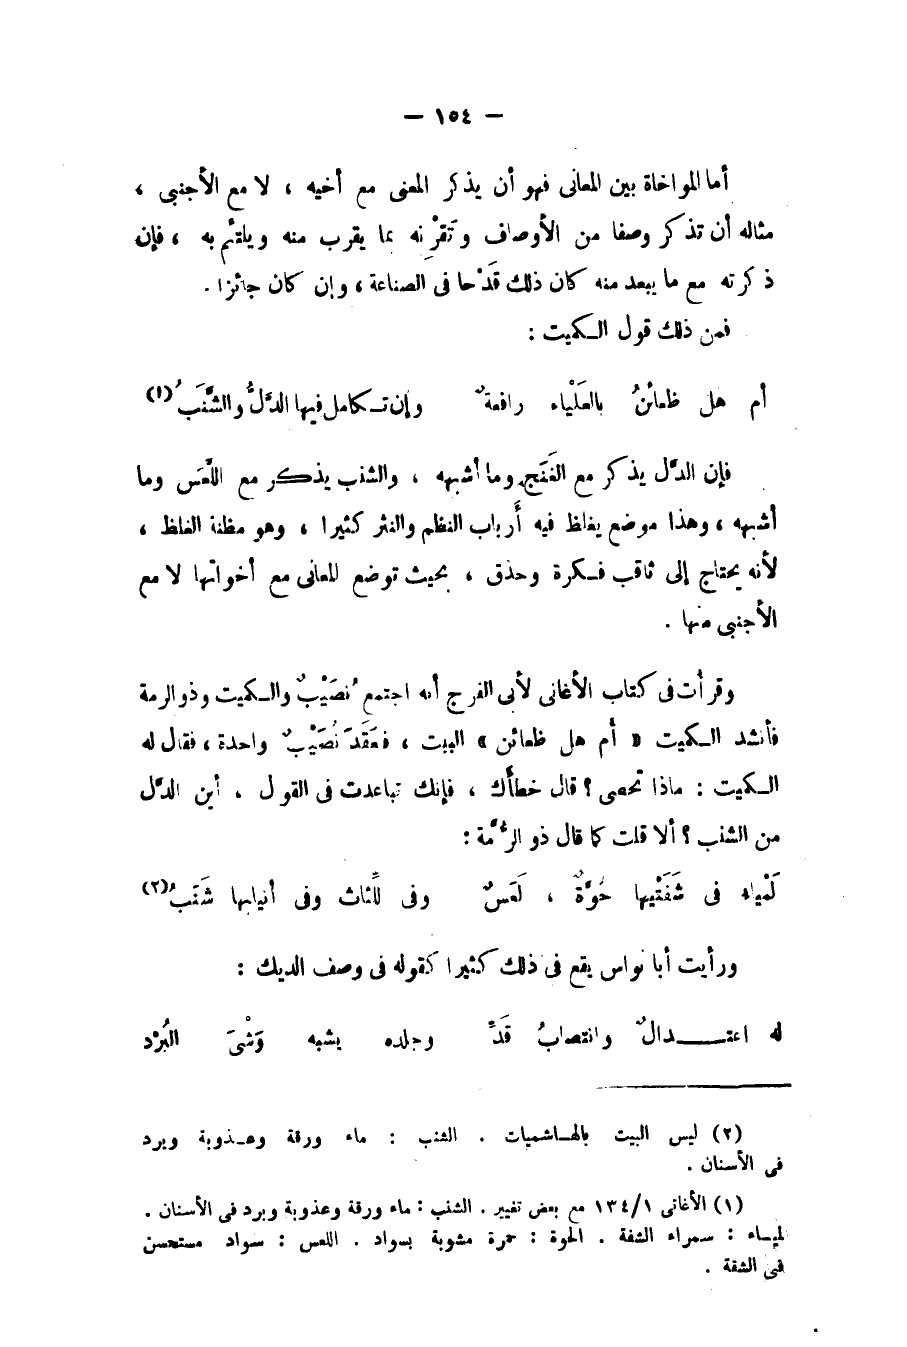 — ١٥٤ —
أما المواخاة بين المعانى فهو أن يذكر المعنى مع أخيه ، لا مع الأجنبى ،
مثاله أن تذكر وصفا من الأوصاف وتَقْرِنه بما يقرب منه ويلتئم به ، فإن
ذكرته مع ما يبعد منه كان ذلك قَدْحا فى الصناعة ، وإن كان جائزا .
فمن ذلك قول الكميت :
أم هل ظعائنُ بالعَلْياء رافعةٌ وإن تكامل فيها الدَّلُّ والشَّنَبُ (١)
فإن الدلّ يذكر مع الغَنَج وما أشبهه ، والشنب يذكر مع اللَّعَس وما
أشبهه ، وهذا موضع يغلظ فيه أَرباب النظم والنثر كثيرا ، وهو مظنة الغلظ ،
لأنه يحتاج إلى ثاقب فكرة وحذق ، بحيث توضع المعانى مع أخواتها لا مع
الأجنبى منها .
وقرأت فى كتاب الأغانى لأبى الفرج أنه اجتمع نُصَيْبٌ والكميت وذو الرمة
فأنشد الكميت « أم هل ظعائن » البيت ، فعَقَدَ نُصَيْبٌ واحدة ، فقال له
الكميت : ماذا تحصى ؟ قال خطأَك ، فإنك تباعدت فى القول ، أين الدلّ
من الشنب ؟ ألا قلت كما قال ذو الرُّمَّة :
لَمْياء فى شَفَتْيها حُوَّةٌ ، لَعَسٌ وفى لَِّثاث وفى أنيابها شَنَبُ (٢)
ورأيت أبا نواس يقع فى ذلك كثيرا كقوله فى وصف الديك :
له اعتدالٌ وانتصابُ قَدِّ وجلده يشبه وَشْىَ البُرْد
(٢) ليس البيت بالهاشميات . الشنب : ماء ورقة وعذوبة وبرد
فى الأسنان .
(١) الأغانى ١٣٤/١ مع بعض تغيير . الشنب : ماء ورقة وعذوبة وبرد فى الأسنان .
لمياء : سمراء الشفة . الحوة : حمرة مشوبة بسواد . اللعس : سواد مستحسن
فى الشفة .